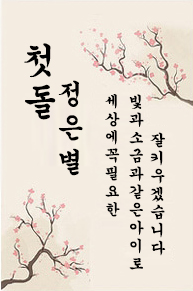 첫돌
정은별
세상에꼭필요한
빛과소금과같은아이로
잘키우겠습니다